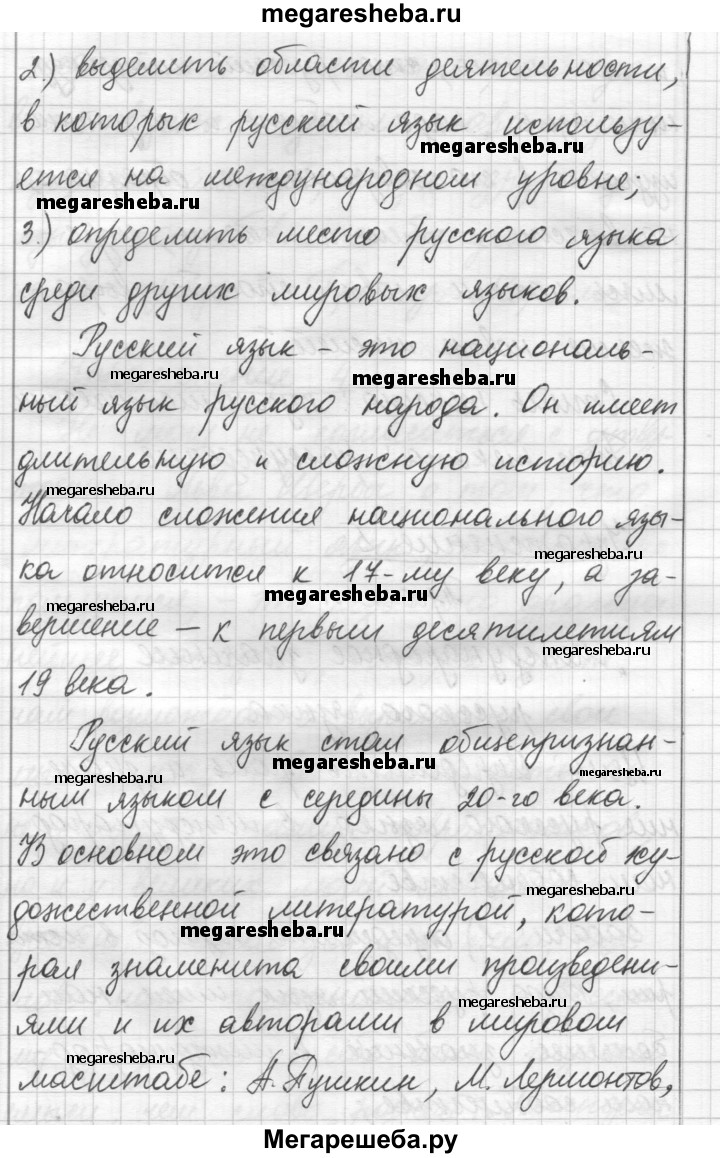 megaresheba.ru
2.) выделить области деятельности,
в которых русский язык использу-
megaresheba.ru
ется на международном уровне;
megaresheba.ru
3.) определить место русского языка
среди других мировых языков.
Русский язык – это националь-
megaresheba.ru megaresheba.ru
ный язык русского народа. Он имеет
длительную и сложную историю.
megaresheba.ru
Начало сложения национального язы-
megaresheba.ru
ка относится к 17-му веку, а за-
megaresheba.ru megaresheba.ru
вершение – к первым десятилетиям
megaresheba.ru
19 века.
Русский язык стал общепризнан-
megaresheba.ru megaresheba.ru megaresheba.ru
ным языком с середины 20-го века.
В основном это связано с русской ху-
megaresheba.ru
дожественной литературой, кото-
megaresheba.ru
рая знаменита своими произведени-
megaresheba.ru
ями и их авторами в мировом
megaresheba.ru
масштабе: А. Пушкин, М. Лермонтов,
Мегарешеба.ру